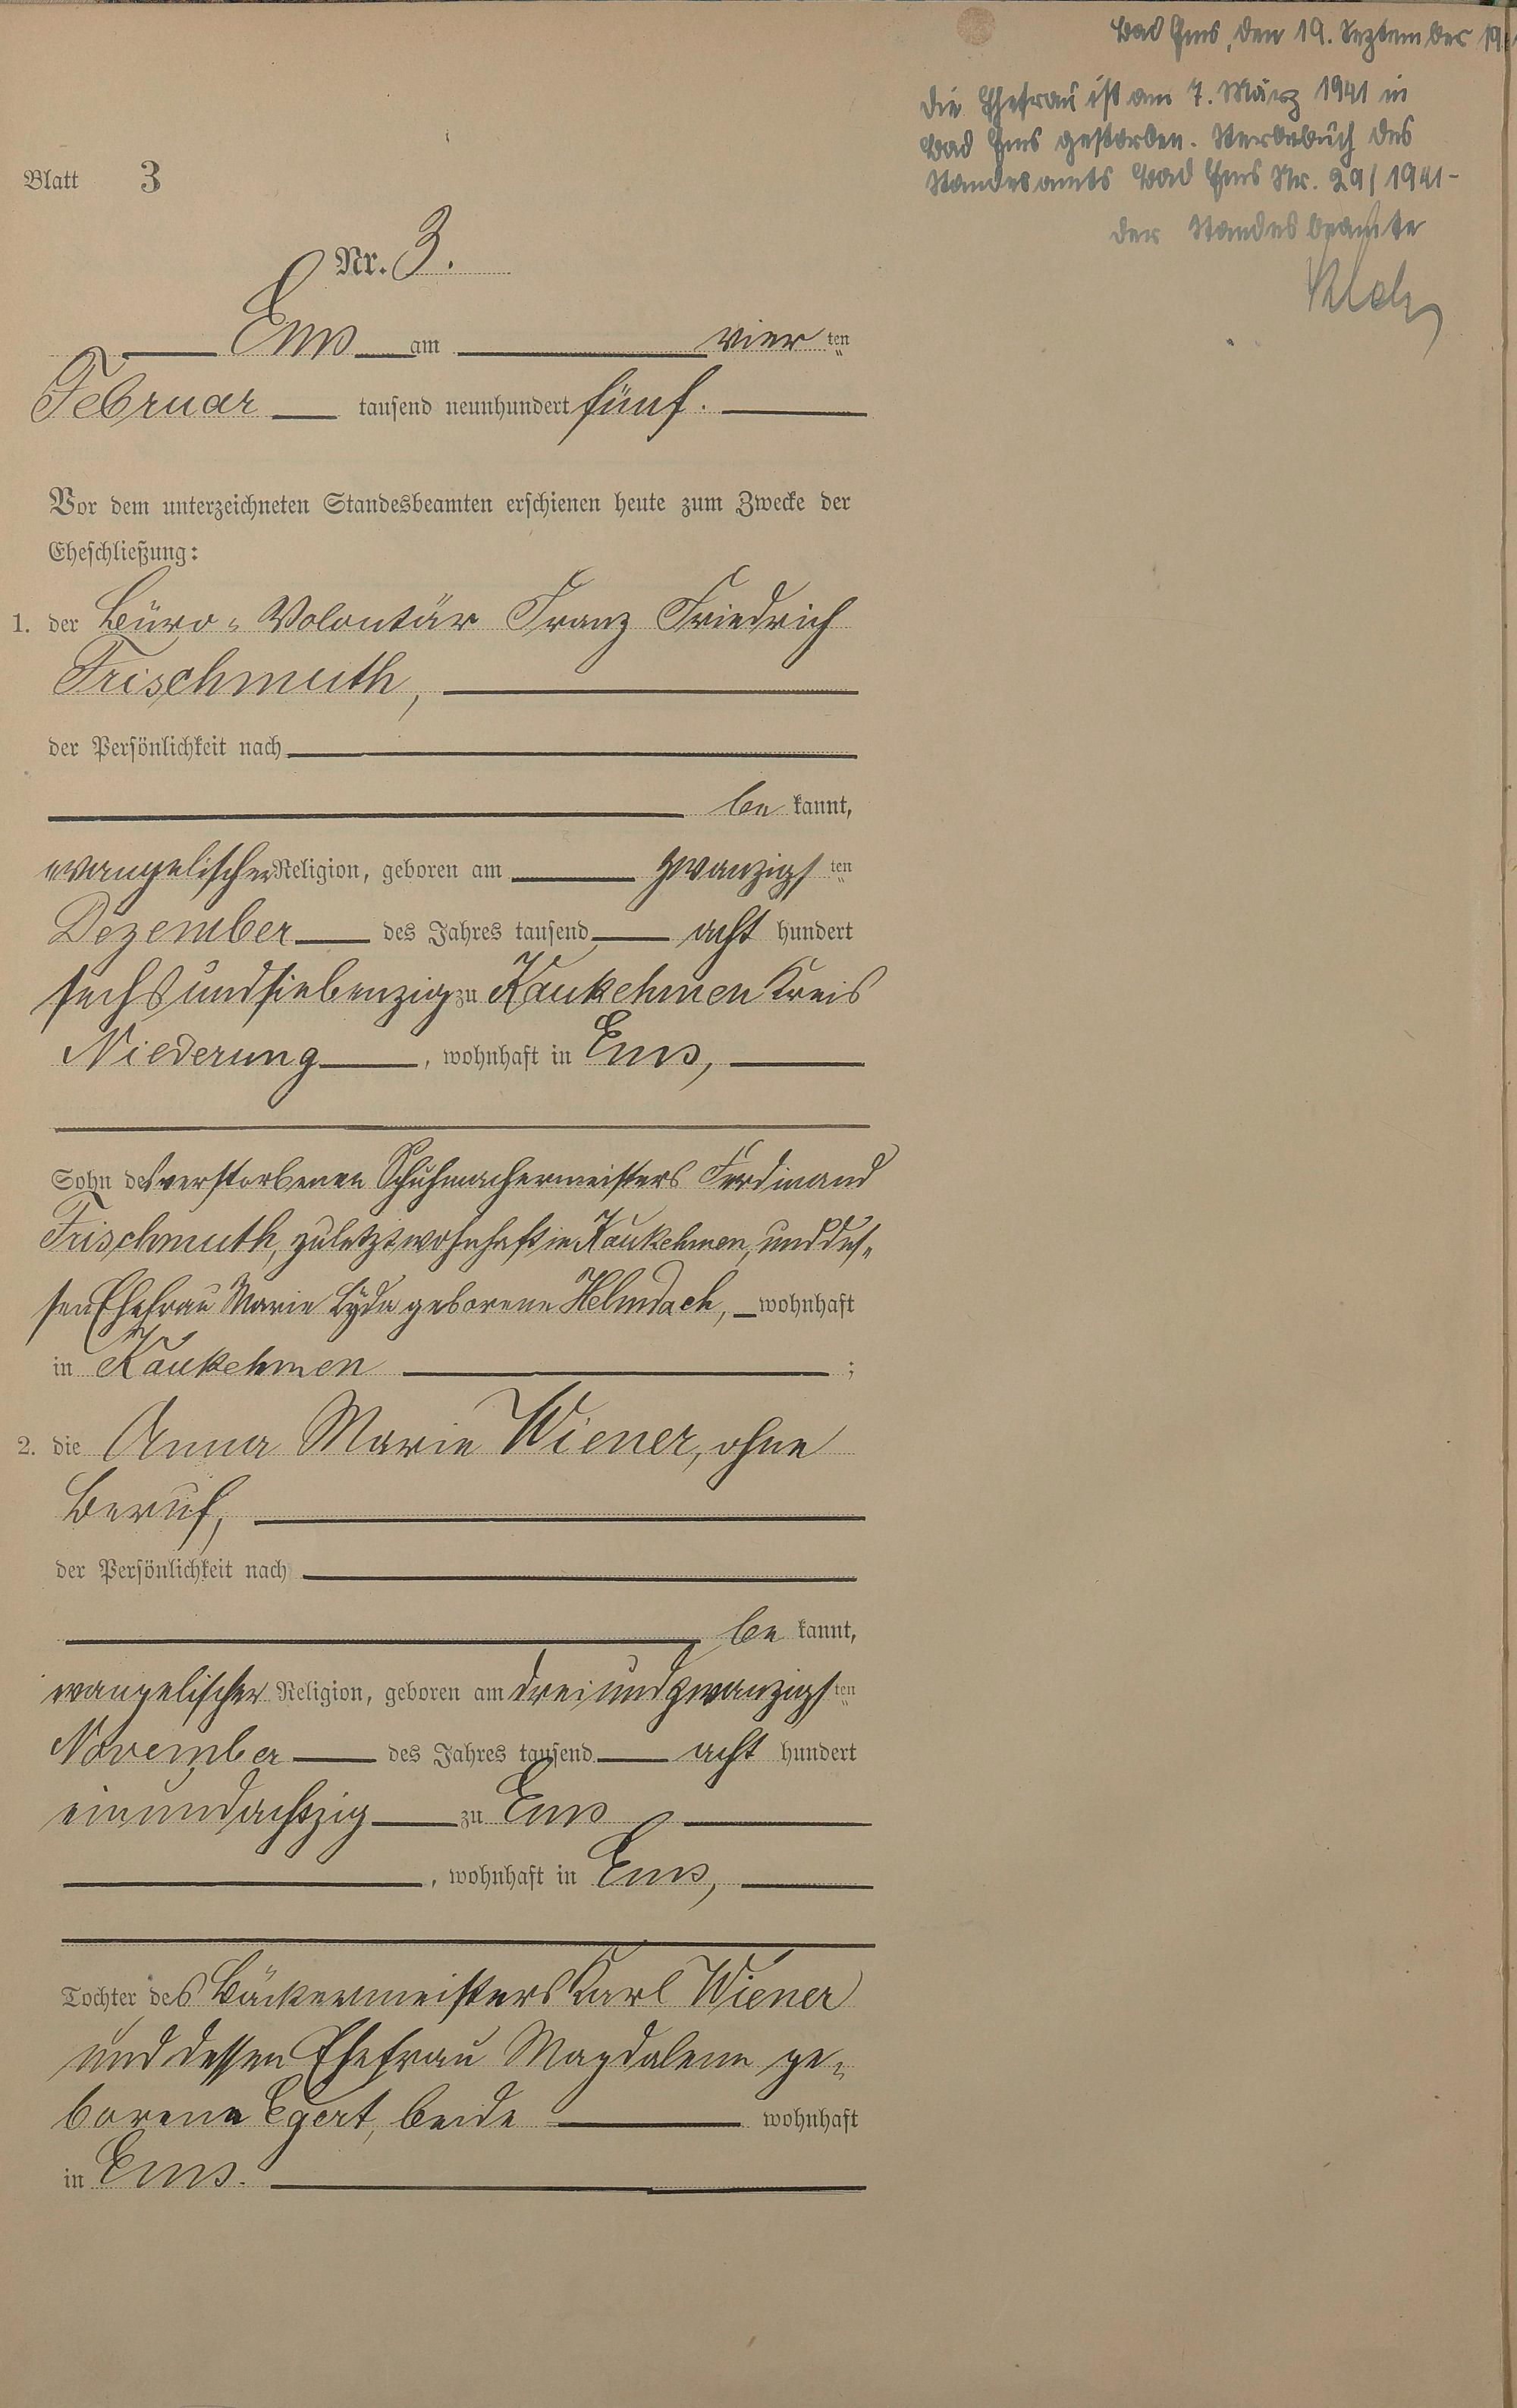 Bad Ems, den 19. September 19
Die Ehefrau ist am 7. März 1941 in
Bad Ems gestorben. Sterbebuch des
Standesamts Bad Ems Nr. 29/1941-
Der Standesbeamte
Blatt 3
Nr. 3.
Ems am vierten
Februar tausend neunhundert fünf.
Vor dem unterzeichneten Standesbeamten erschienen heute zum Zwecke der
Eheschließung:
1. der Büro-Volontär Franz Friedrich
Frischmuth,
der Persönlichkeit nach
be kannt,
evangelischer Religion, geboren am zwanzigsten
Dezember des Jahres tausend acht hundert
sechsundsiebenzig zu Kaukehmen Kreis
Niederung, wohnhaft in Ems,
Sohn des verstorbenen Schuhmachermeisters Ferdinand
Frischmuth, zuletzt wohnhaft in Kaukehmen, und des-
sen Ehefrau Marie Lyda geborene Helmdach, wohnhaft
in Kaukehmen ;
2. die Anna Marie Wiener, ohne
Beruf,
der Persönlichkeit nach
be kannt,
evangelischer Religion, geboren am dreiundzwanzigsten
November des Jahres tausend acht hundert
einundachtzig zu Ems
, wohnhaft in Ems,
Tochter des Bäckermeisters Karl Wiener
und dessen Ehefrau Magdalene ge-
borene Egert, beide wohnhaft
in Ems.